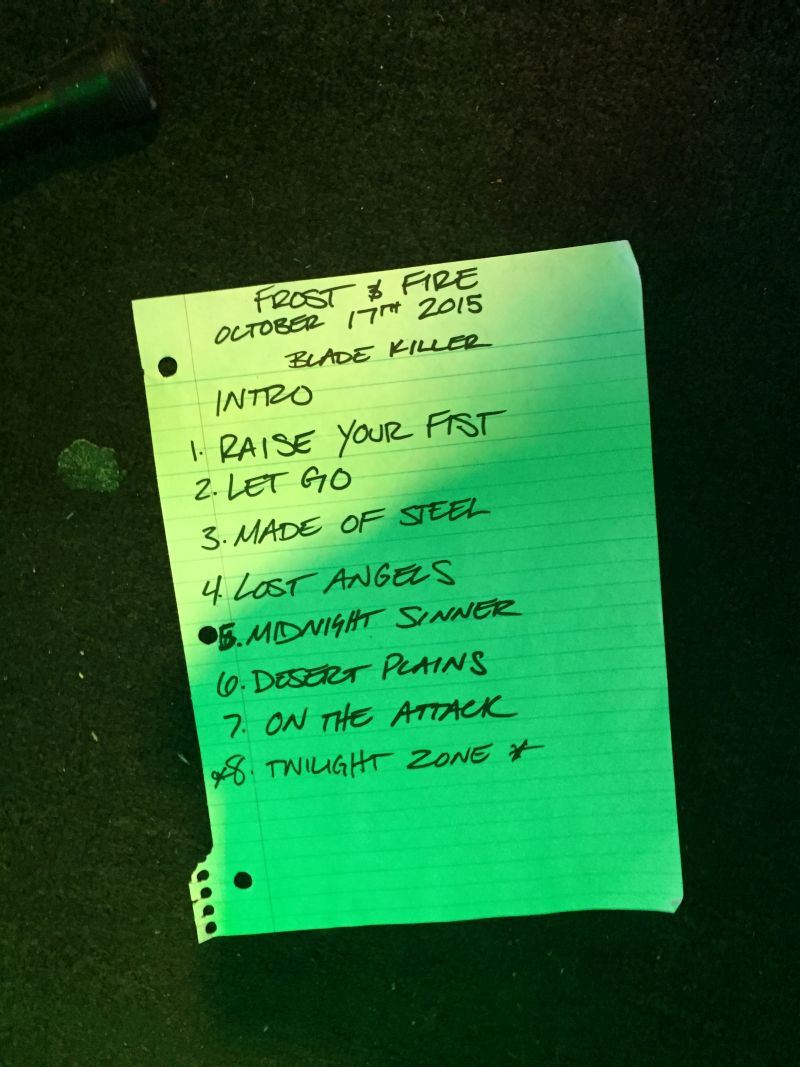 FROST & FIRE
OCTOBER 17TH 2015
BLADE KILLER
INTRO
1. RAISE YOUR FIST
2. LET GO
3. MADE OF STEEL
4. LOST ANGELS
5. MIDNIGHT SINNER
6. DESERT PLAINS
7. ON THE ATTACK
*8. TWILIGHT ZONE *